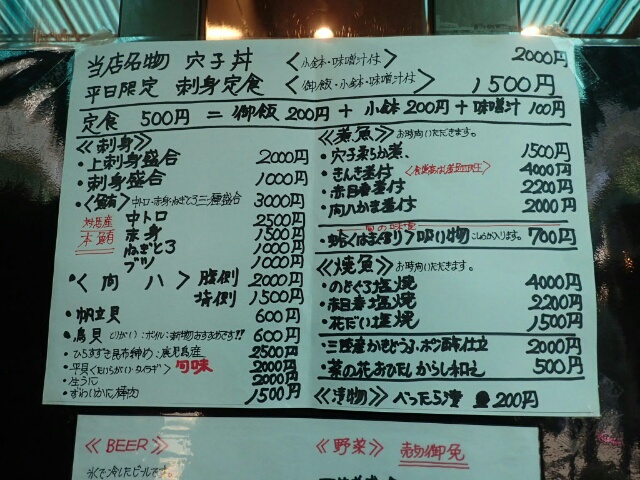 当店名物 穴子丼 〈小鉢・味噌汁付〉 2000円
平日限定 刺身定食 〈御飯・小鉢・味噌汁付〉 1500円
定食 500円 = 御飯 200円 + 小鉢 200円 + 味噌汁 100円
≪刺身≫
・上刺身盛合 2000円
・刺身盛合 1000円
・〈鮪〉中トロ・赤身・ねぎとろ三種盛合 3000円
対馬産
本鮪
中トロ 2500円
赤身 1500円
ねぎとろ 1000円
ブツ 1000円
・〈肉八〉腹側 2000円
背側 1500円
・帆立貝 600円
・鳥貝 とりがい:ボイル:新物おすすめです!! 600円
・ひらすずき昆布締め:鹿児島産 2500円
・平貝〈たいらがい・タイラギ〉 旬味 2000円
・生うに 2000円
・ずわいかに棒肉 1500円
≪煮魚≫ お時間いただきます。
・穴子柔らか煮 1500円
・きんき煮付 4000円
・赤目春煮付 2200円
・肉八かま煮付 2000円
・蛤〈はまぐり〉吸い物 こしょうが入ります。 700円
≪焼魚≫ お時間いただきます。
・のどぐろ塩焼 4000円
・赤目春塩焼 2200円
・花だい塩焼 1500円
・三陸産かきどうふ・ポン酢仕立 2000円
・菜の花おひたしからし和え 500円
≪漬物≫ べったら漬 200円
≪BEER≫
氷で冷したビールです。
≪野菜≫ 売切御免